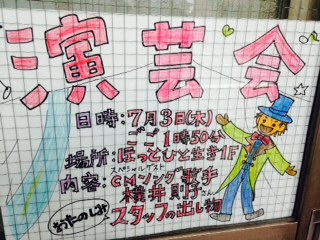 演芸会
日時:7月3日(木)
ごご1時50分
場所:ほっとひと生き1F
スペシャルゲスト
内容:CMソング歌手
横井則子さん
スタッフの出し物